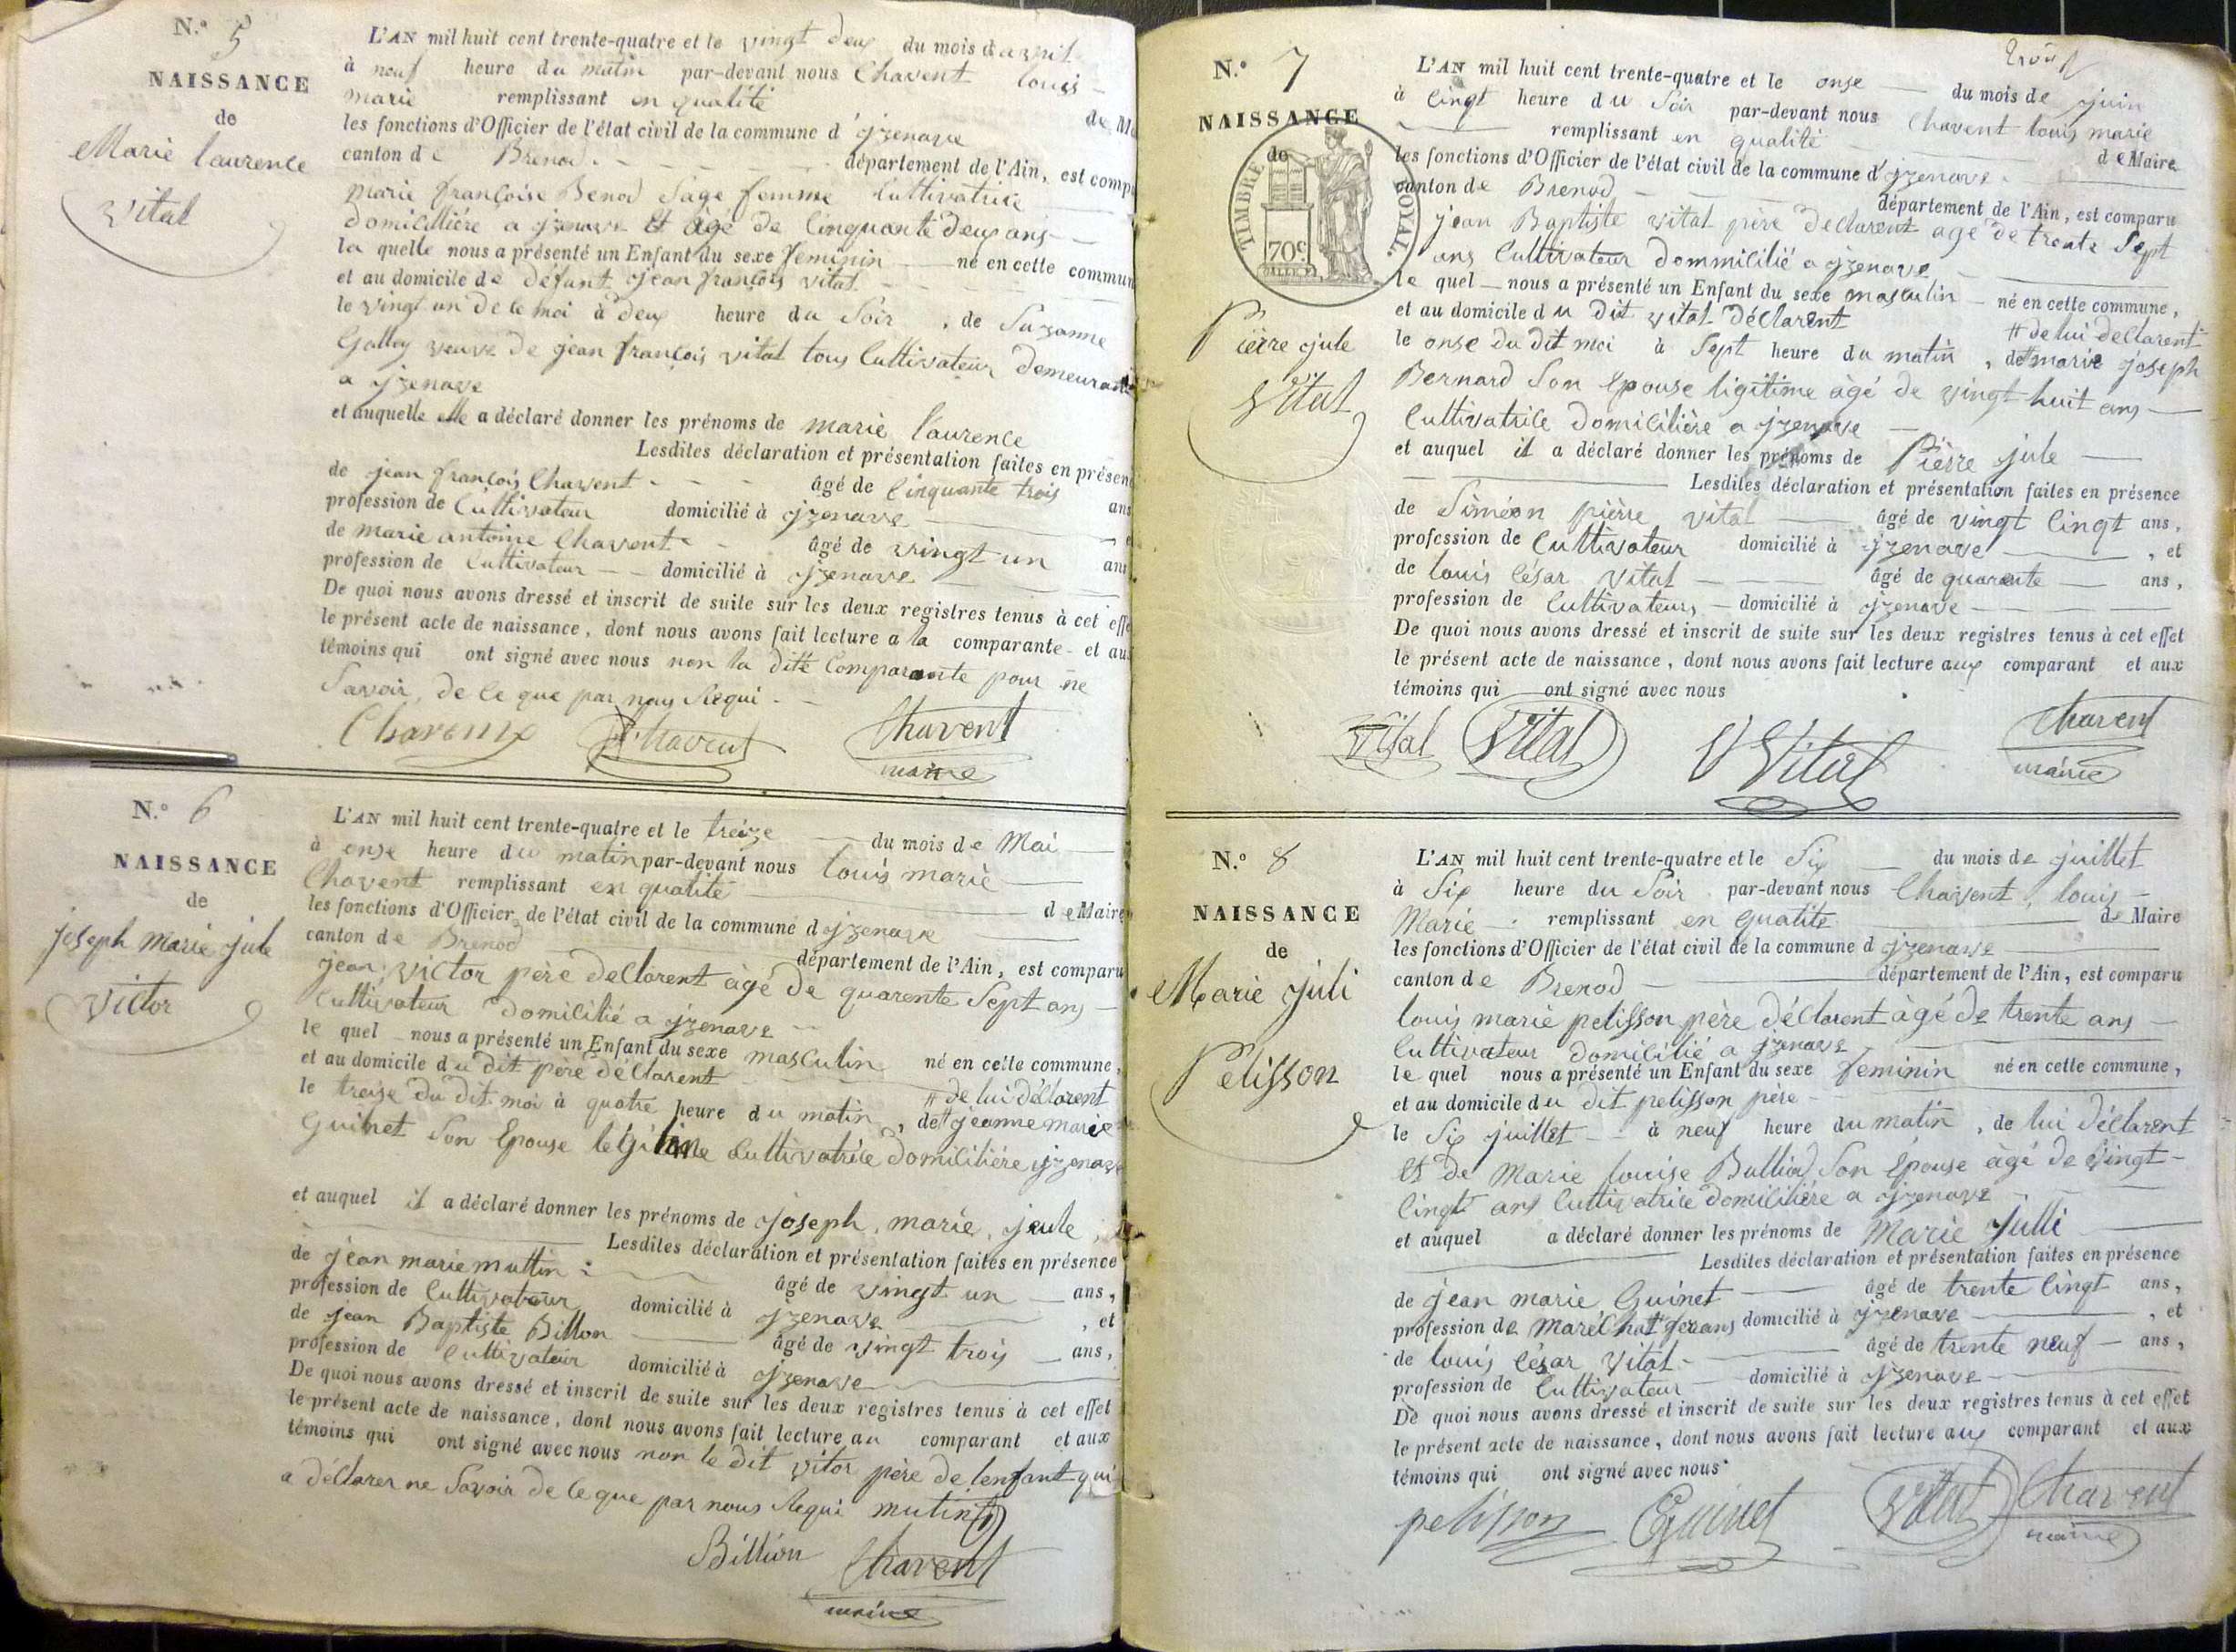 N.º 5
NAISSANCE
de
Marie laurence
vital
L'AN mil huit cent trente-quatre et le vingt deux du mois d avril
à neuf heure du matin par-devant nous Chavent louis
marie remplissant en qualité de M
les fonctions d'Officier de l'état civil de la commune d'jzenave
canton de Brenod département de l'Ain, est compa
marie françoise Benod Sage femme Cultivatrice
domicillière a jzenave Et âgé de Cinquante deux ans
la quelle nous a présenté un Enfant du sexe feminin né en cette commun
et au domicile de défunt jean françois vital
le vingt un de le moi à deux heure du Soir, de Suzanne
Galley veuve de jean françois vital tous Cultivateur demeurant
a jzenave
et auquelle elle a déclaré donner les prénoms de marie laurence
Lesdites déclaration et présentation faites en présen
de jean françois Chavent âgé de Cinquante trois ans
profession de Cultivateur domicilié à jzenave
de marie antoine Chavent âgé de vingt un ans
profession de Cultivateur domicilié à jzenave
De quoi nous avons dressé et inscrit de suite sur les deux registres tenus à cet effe
le présent acte de naissance, dont nous avons fait lecture a la comparante et au
témoins qui ont signé avec nous non la dité Comparante pour ne
Savoir, de ce que par nous Requi
Chavent Chavent
maire
N.º 6
NAISSANCE
de
joseph Marie jule
Victor
L'AN mil huit cent trente-quatre et le treize du mois de Mai
à onse heure du matin par-devant nous louis marie
Chavent remplissant en qualité de Maire
les fonctions d'Officier de l'état civil de la commune d jzenave
canton de Brenod département de l'Ain, est comparu
jean victor père declarent âgé de quarente Sept ans
Cultivateur domicilié a jzenave
le quel nous a présenté un Enfant du sexe masculin né en cette commune,
et au domicile du dit père déclarent # de lui déclarent
le treise du dit moi à quatre heure du matin, de # jeanne marie
Guinet Son Epouse legitime Cultivatrice domicilière jzenave
et auquel il a déclaré donner les prénoms de joseph, marie, jeule
Lesdites déclaration et présentation faites en présence
de jean marie muttin âgé de vingt un ans,
profession de Cultivateur domicilié à jzenave, et
de jean Baptiste Billon âgé de vingt trois ans,
profession de Cultivateur domicilié à jzenave
De quoi nous avons dressé et inscrit de suite sur les deux registres tenus à cet effet
le présent acte de naissance, dont nous avons fait lecture au comparant et aux
témoins qui ont signé avec nous non le dit vitor père de lenfant qui
a déclarer ne Savoir de ce que par nous Requi mutin
Billion Chavent
maire
N.º 7
NAISSANCE
de
TIMBRE ROYAL.
70c
Pierre jule
Vital
L'AN mil huit cent trente-quatre et le onse du mois de juin
à Cinqt heure du Soir par-devant nous Chavent louis marie
remplissant en qualité de Maire
les fonctions d'Officier de l'état civil de la commune d'jzenave
canton de Brenod département de l'Ain, est comparu
jean Baptiste vital père declarent age de trente Sept
ans Cultivateur dommicilié a jzenave
le quel nous a présenté un Enfant du sexe masculin né en cette commune,
et au domicile du dit vital déclarent # de lui declarent
le onse du dit moi à Sept heure du matin, de # marie joseph
Bernard Son Epouse ligitime âgé de vingt huit ans
Cultivatrice domicilière a jzenave
et auquel il a déclaré donner les prénoms de Pierre jule
Lesdites déclaration et présentation faites en présence
de Siméon pièrre vital âgé de vingt Cingt ans,
profession de Cultivateur domicilié à jzenave, et
de louis César vital âgé de quarente ans,
profession de Cultivateurs domicilié à jzenave
De quoi nous avons dressé et inscrit de suite sur les deux registres tenus à cet effet
le présent acte de naissance, dont nous avons fait lecture aux comparant et aux
témoins qui ont signé avec nous
Vital Vital Vital Chavent
maire
N.º 8
NAISSANCE
de
Marie juli
Pelisson
L'AN mil huit cent trente-quatre et le Six du mois de juillet
à Six heure du Soir par-devant nous Chavent, louis
Marie remplissant en qualite de Maire
les fonctions d'Officier de l'état civil de la commune d jzenave
canton de Brenod département de l'Ain, est comparu
louis marie pelisson père déclarent âgé de trente ans
Cultivateur domicilié a jzenave
le quel nous a présenté un Enfant du sexe feminin né en cette commune,
et au domicile du dit pelisson père
le Six juillet à neuf heure du matin, de lui déclarent
Et de Marie louise Bulliod Son Epouse âgé de vingt
Cingt ans Cultivatrice domicilière a jzenave
et auquel a déclaré donner les prénoms de Marie Julli
Lesdites déclaration et présentation faites en présence
de jean marie Guinet âgé de trente Cingt ans,
profession de Maréchat domicilié à jzenave, et
de louis César Vital âgé de trente neuf ans,
profession de Cultivateur domicilié à jzenave
De quoi nous avons dressé et inscrit de suite sur les deux registres tenus à cet effet
le présent acte de naissance, dont nous avons fait lecture aux comparant et aux
témoins qui ont signé avec nous
pelisson Guinet Vital Chavent
maire